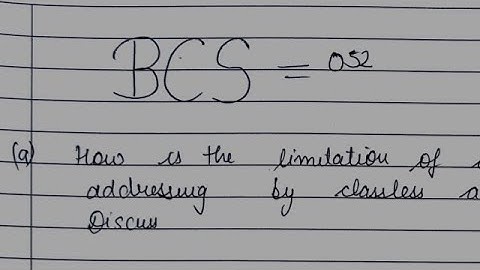 BCS = 052
(a) How is the limitation of
addressing by classless a
Discuss